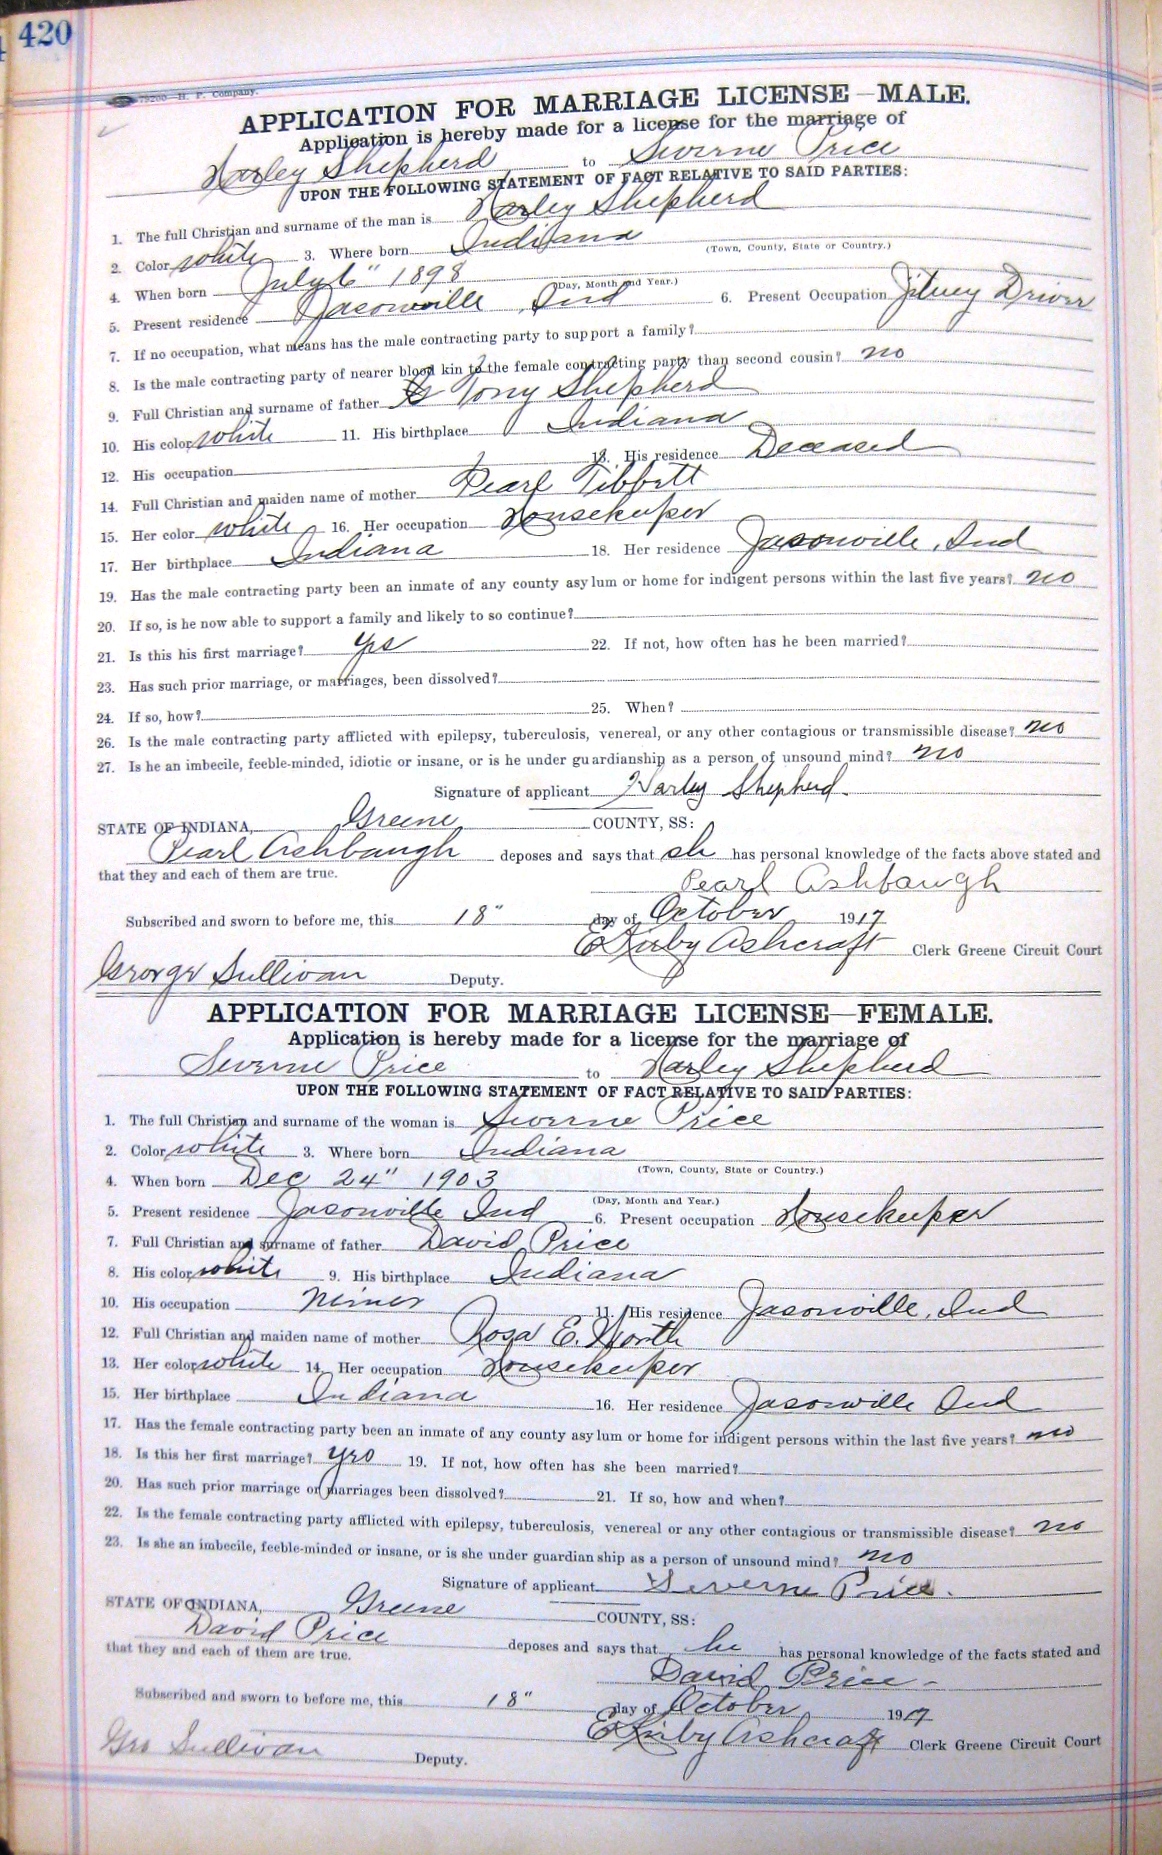 420
79200—H. P. Company.
APPLICATION FOR MARRIAGE LICENSE—MALE.
Application is hereby made for a license for the marriage of
Harley Shepherd to Severne Price
UPON THE FOLLOWING STATEMENT OF FACT RELATIVE TO SAID PARTIES:
1. The full Christian and surname of the man is Harley Shepherd
2. Color white 3. Where born Indiana
(Town, County, State or Country.)
4. When born July 6" 1898
(Day, Month and Year.)
5. Present residence Jasonville, Ind 6. Present Occupation Jitney Driver
7. If no occupation, what means has the male contracting party to support a family?
8. Is the male contracting party of nearer blood kin to the female contracting party than second cousin? no
9. Full Christian and surname of father Tony Shepherd
10. His color white 11. His birthplace Indiana
12. His occupation 13. His residence Deceased
14. Full Christian and maiden name of mother Pearl Tibbett
15. Her color white 16. Her occupation Housekeeper
17. Her birthplace Indiana 18. Her residence Jasonville, Ind
19. Has the male contracting party been an inmate of any county asylum or home for indigent persons within the last five years? no
20. If so, is he now able to support a family and likely to so continue?
21. Is this his first marriage? yes 22. If not, how often has he been married?
23. Has such prior marriage, or marriages, been dissolved?
24. If so, how? 25. When?
26. Is the male contracting party afflicted with epilepsy, tuberculosis, venereal, or any other contagious or transmissible disease? no
27. Is he an imbecile, feeble-minded, idiotic or insane, or is he under guardianship as a person of unsound mind? no
Signature of applicant Harley Shepherd.
STATE OF INDIANA, Greene COUNTY, SS:
Pearl Ashbaugh deposes and says that sh has personal knowledge of the facts above stated and
that they and each of them are true.
Pearl Ashbaugh
Subscribed and sworn to before me, this 18" day of October 1917
E Kirby Ashcraft Clerk Greene Circuit Court
George Sullivan Deputy.
APPLICATION FOR MARRIAGE LICENSE—FEMALE.
Application is hereby made for a license for the marriage of
Severne Price to Harley Shepherd
UPON THE FOLLOWING STATEMENT OF FACT RELATIVE TO SAID PARTIES:
1. The full Christian and surname of the woman is Severne Price
2. Color white 3. Where born Indiana
(Town, County, State or Country.)
4. When born Dec 24" 1903
(Day, Month and Year.)
5. Present residence Jasonville Ind 6. Present occupation Housekeeper
7. Full Christian and surname of father David Price
8. His color white 9. His birthplace Indiana
10. His occupation Miner 11. His residence Jasonville, Ind
12. Full Christian and maiden name of mother Rosa E. North
13. Her color white 14. Her occupation Housekeeper
15. Her birthplace Indiana 16. Her residence Jasonville Ind
17. Has the female contracting party been an inmate of any county asylum or home for indigent persons within the last five years? no
18. Is this her first marriage? yes 19. If not, how often has she been married?
20. Has such prior marriage or marriages been dissolved? 21. If so, how and when?
22. Is the female contracting party afflicted with epilepsy, tuberculosis, venereal or any other contagious or transmissible disease? no
23. Is she an imbecile, feeble-minded or insane, or is she under guardianship as a person of unsound mind? no
Signature of applicant Severne Price.
STATE OF INDIANA, Greene COUNTY, SS:
David Price deposes and says that he has personal knowledge of the facts stated and
that they and each of them are true.
David Price
Subscribed and sworn to before me, this 18" day of October 1917
E Kirby Ashcraft Clerk Greene Circuit Court
Geo Sullivan Deputy.